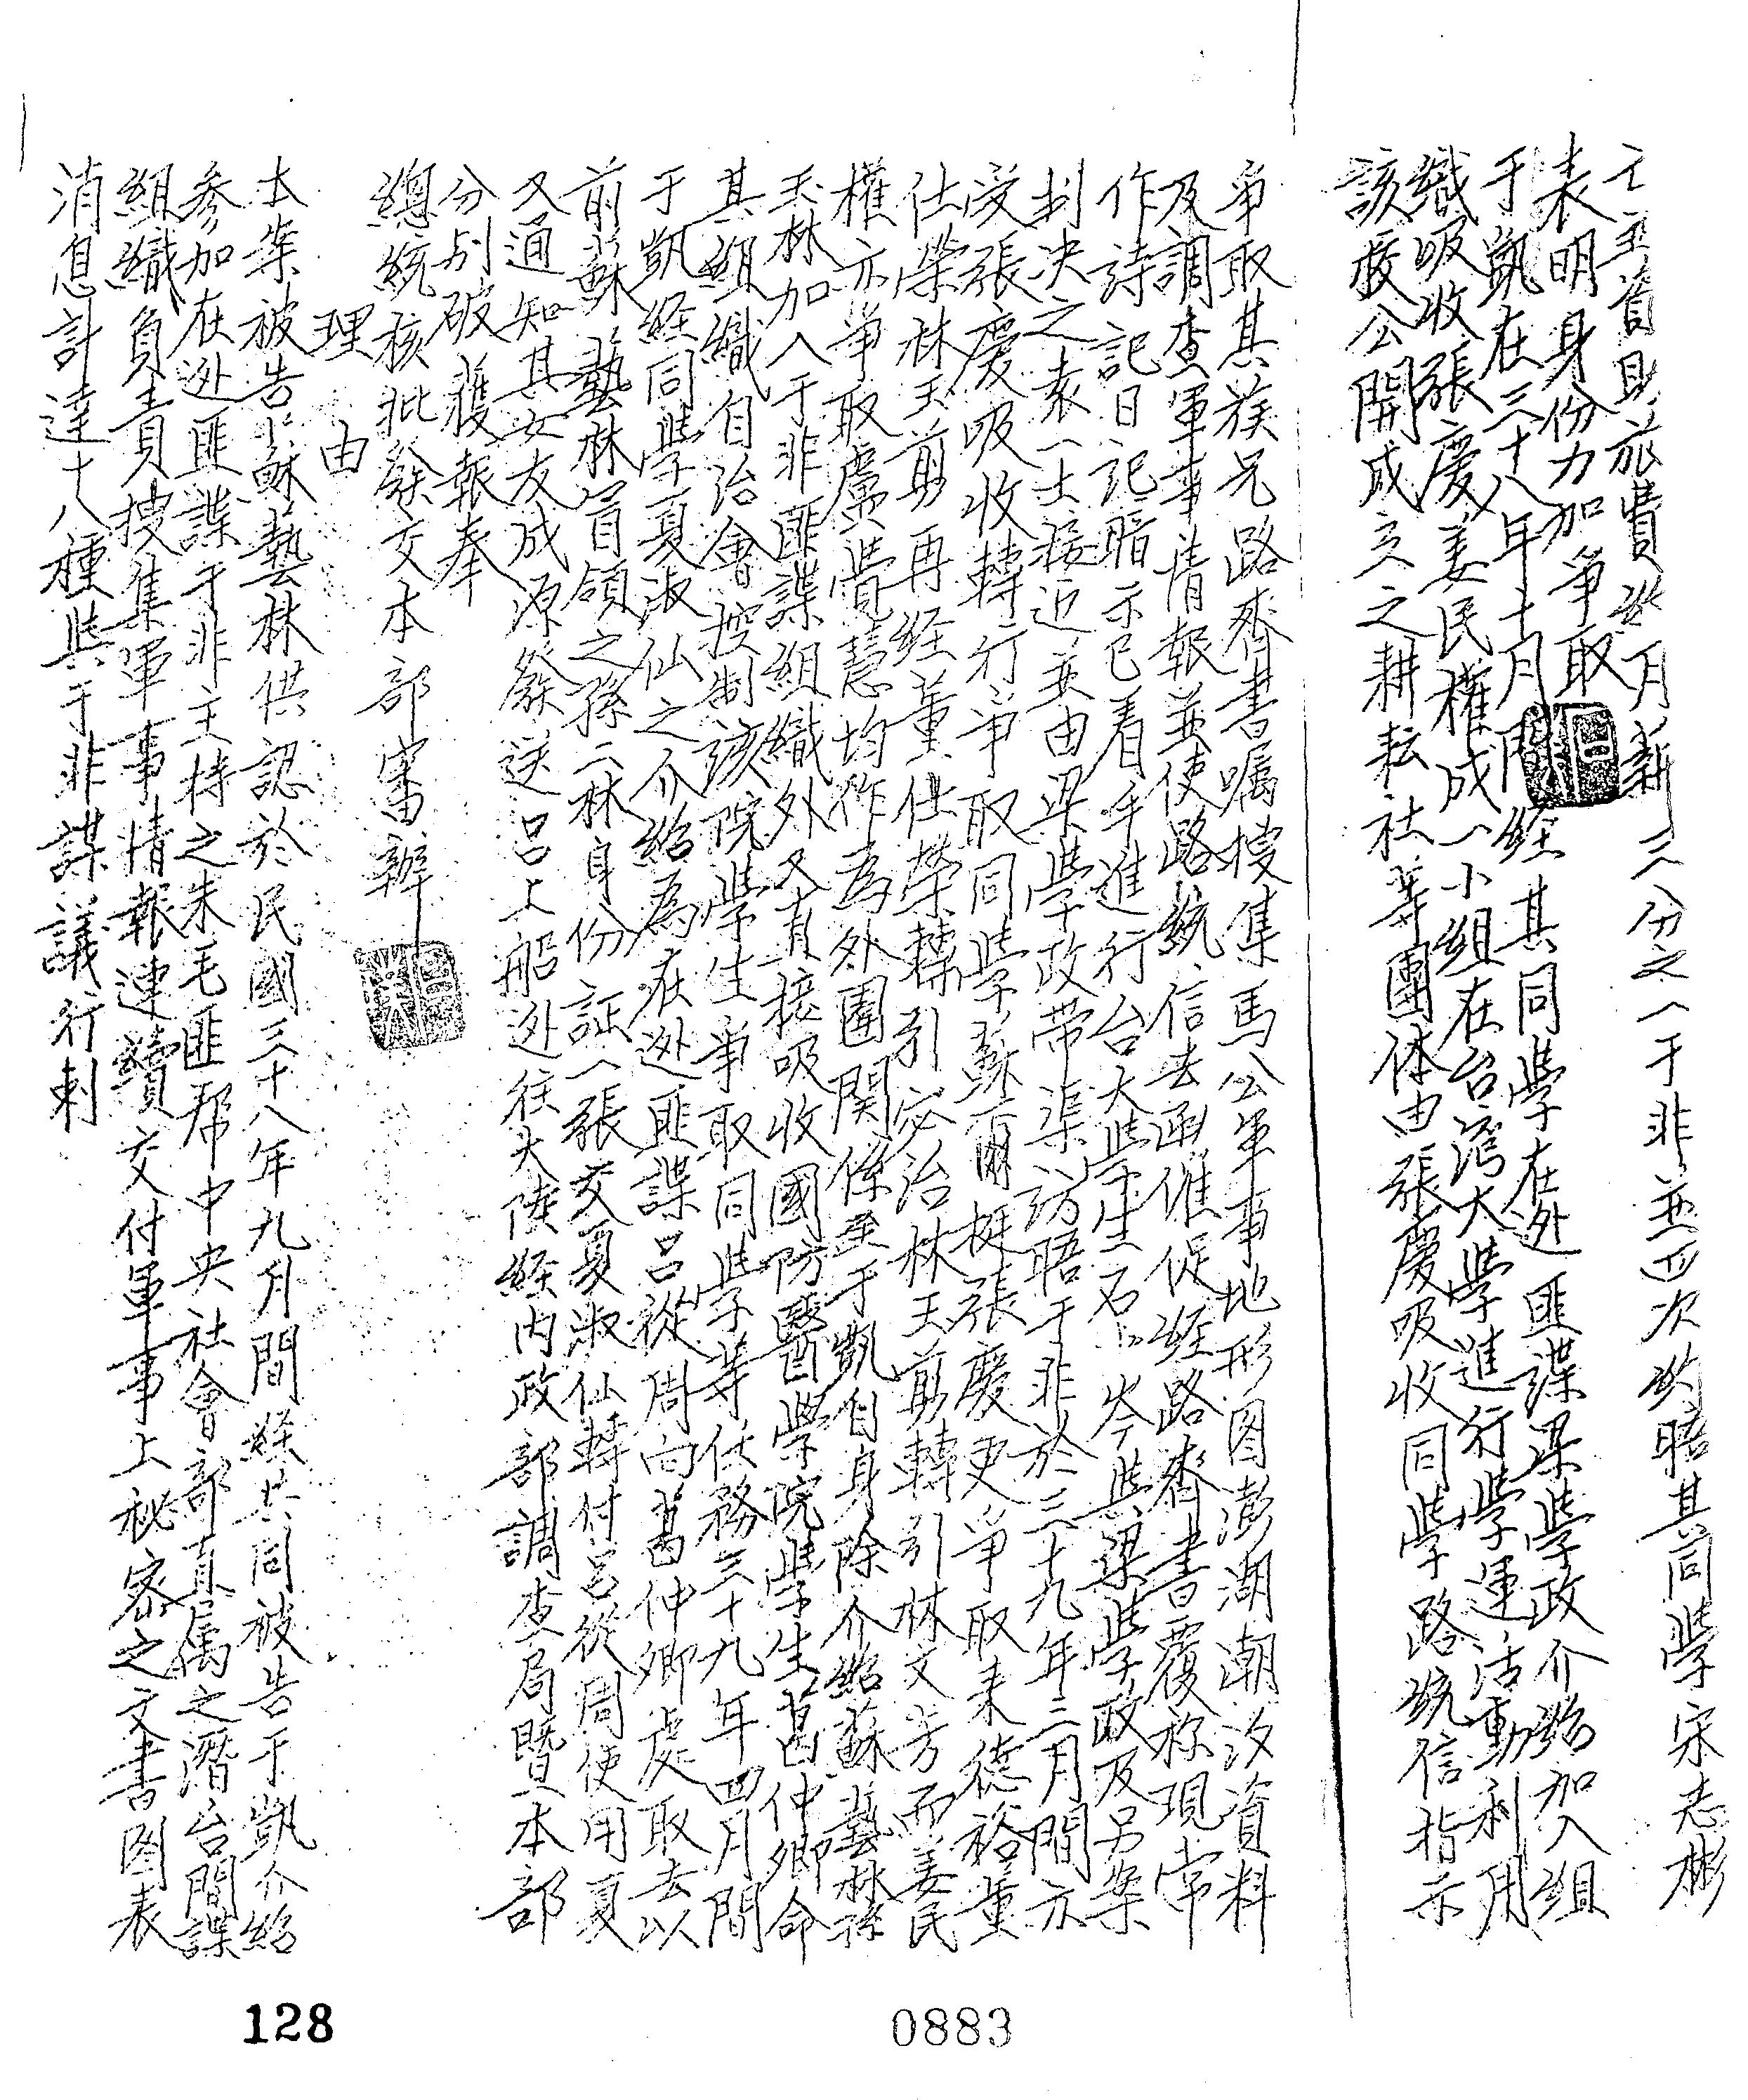 亡至首貝旅費匪月薪三分之一于非並四次匪晤其同學宋志彬
表明身份力加爭取
于凱在三十八年十月間經其同學在逃匪諜梁學政介紹加入組
織吸收張慶姜民權成一小組在台灣大學進行學運活動利用
該校公開成立之耕耘社等團体由張慶吸收同學路統信指示
爭取其族兄路齊書囑搜集馬公軍事地形图澎湖潮汐資料
及調查軍事情報並使路統信去函催促經路齊書覆称現常
作詩記日記暗示已着手進行台大學生石小岑與梁學政及另案
判决之袁一士接近並由梁學政帶渠訪晤于非於三十九年三月間亦
受張慶吸收轉行爭取同學蘇爾挺張慶更爭取耒德裕董
仕榮林玉剪再經董仕榮轉引宓治林玉剪轉引林文芳而姜民
權亦爭取盧覺慧均作為外圍関係至于凱自身除介紹蘇藝林孫
玉林加入于非匪諜組織外又直接吸收國防醫學院學生葛仲卿命
其組織自治會控制該院學生爭取同學等任務三十九年四月間
于凱經同學夏淑仙之介紹為在逃匪諜呂從周向葛仲卿處取去以
前蘇藝林冒領之孫二林身份証一張交夏淑仙轉付呂從周使用夏
又通知其女友成源發送呂上船逃往大陸經内政部調查局暨本部
分别破獲報奉
總統核批發交本部審辦
理由
本案被告蘇藝林供認於民國三十八年九月間經共同被告于凱介紹
參加在逃匪諜于非主持之朱毛匪帮中央社會部直属之潛台間諜
組織負責搜集軍事情報連續交付軍事上祕密之文書图表
消息計達十八種與于非謀議行刺
128
0883